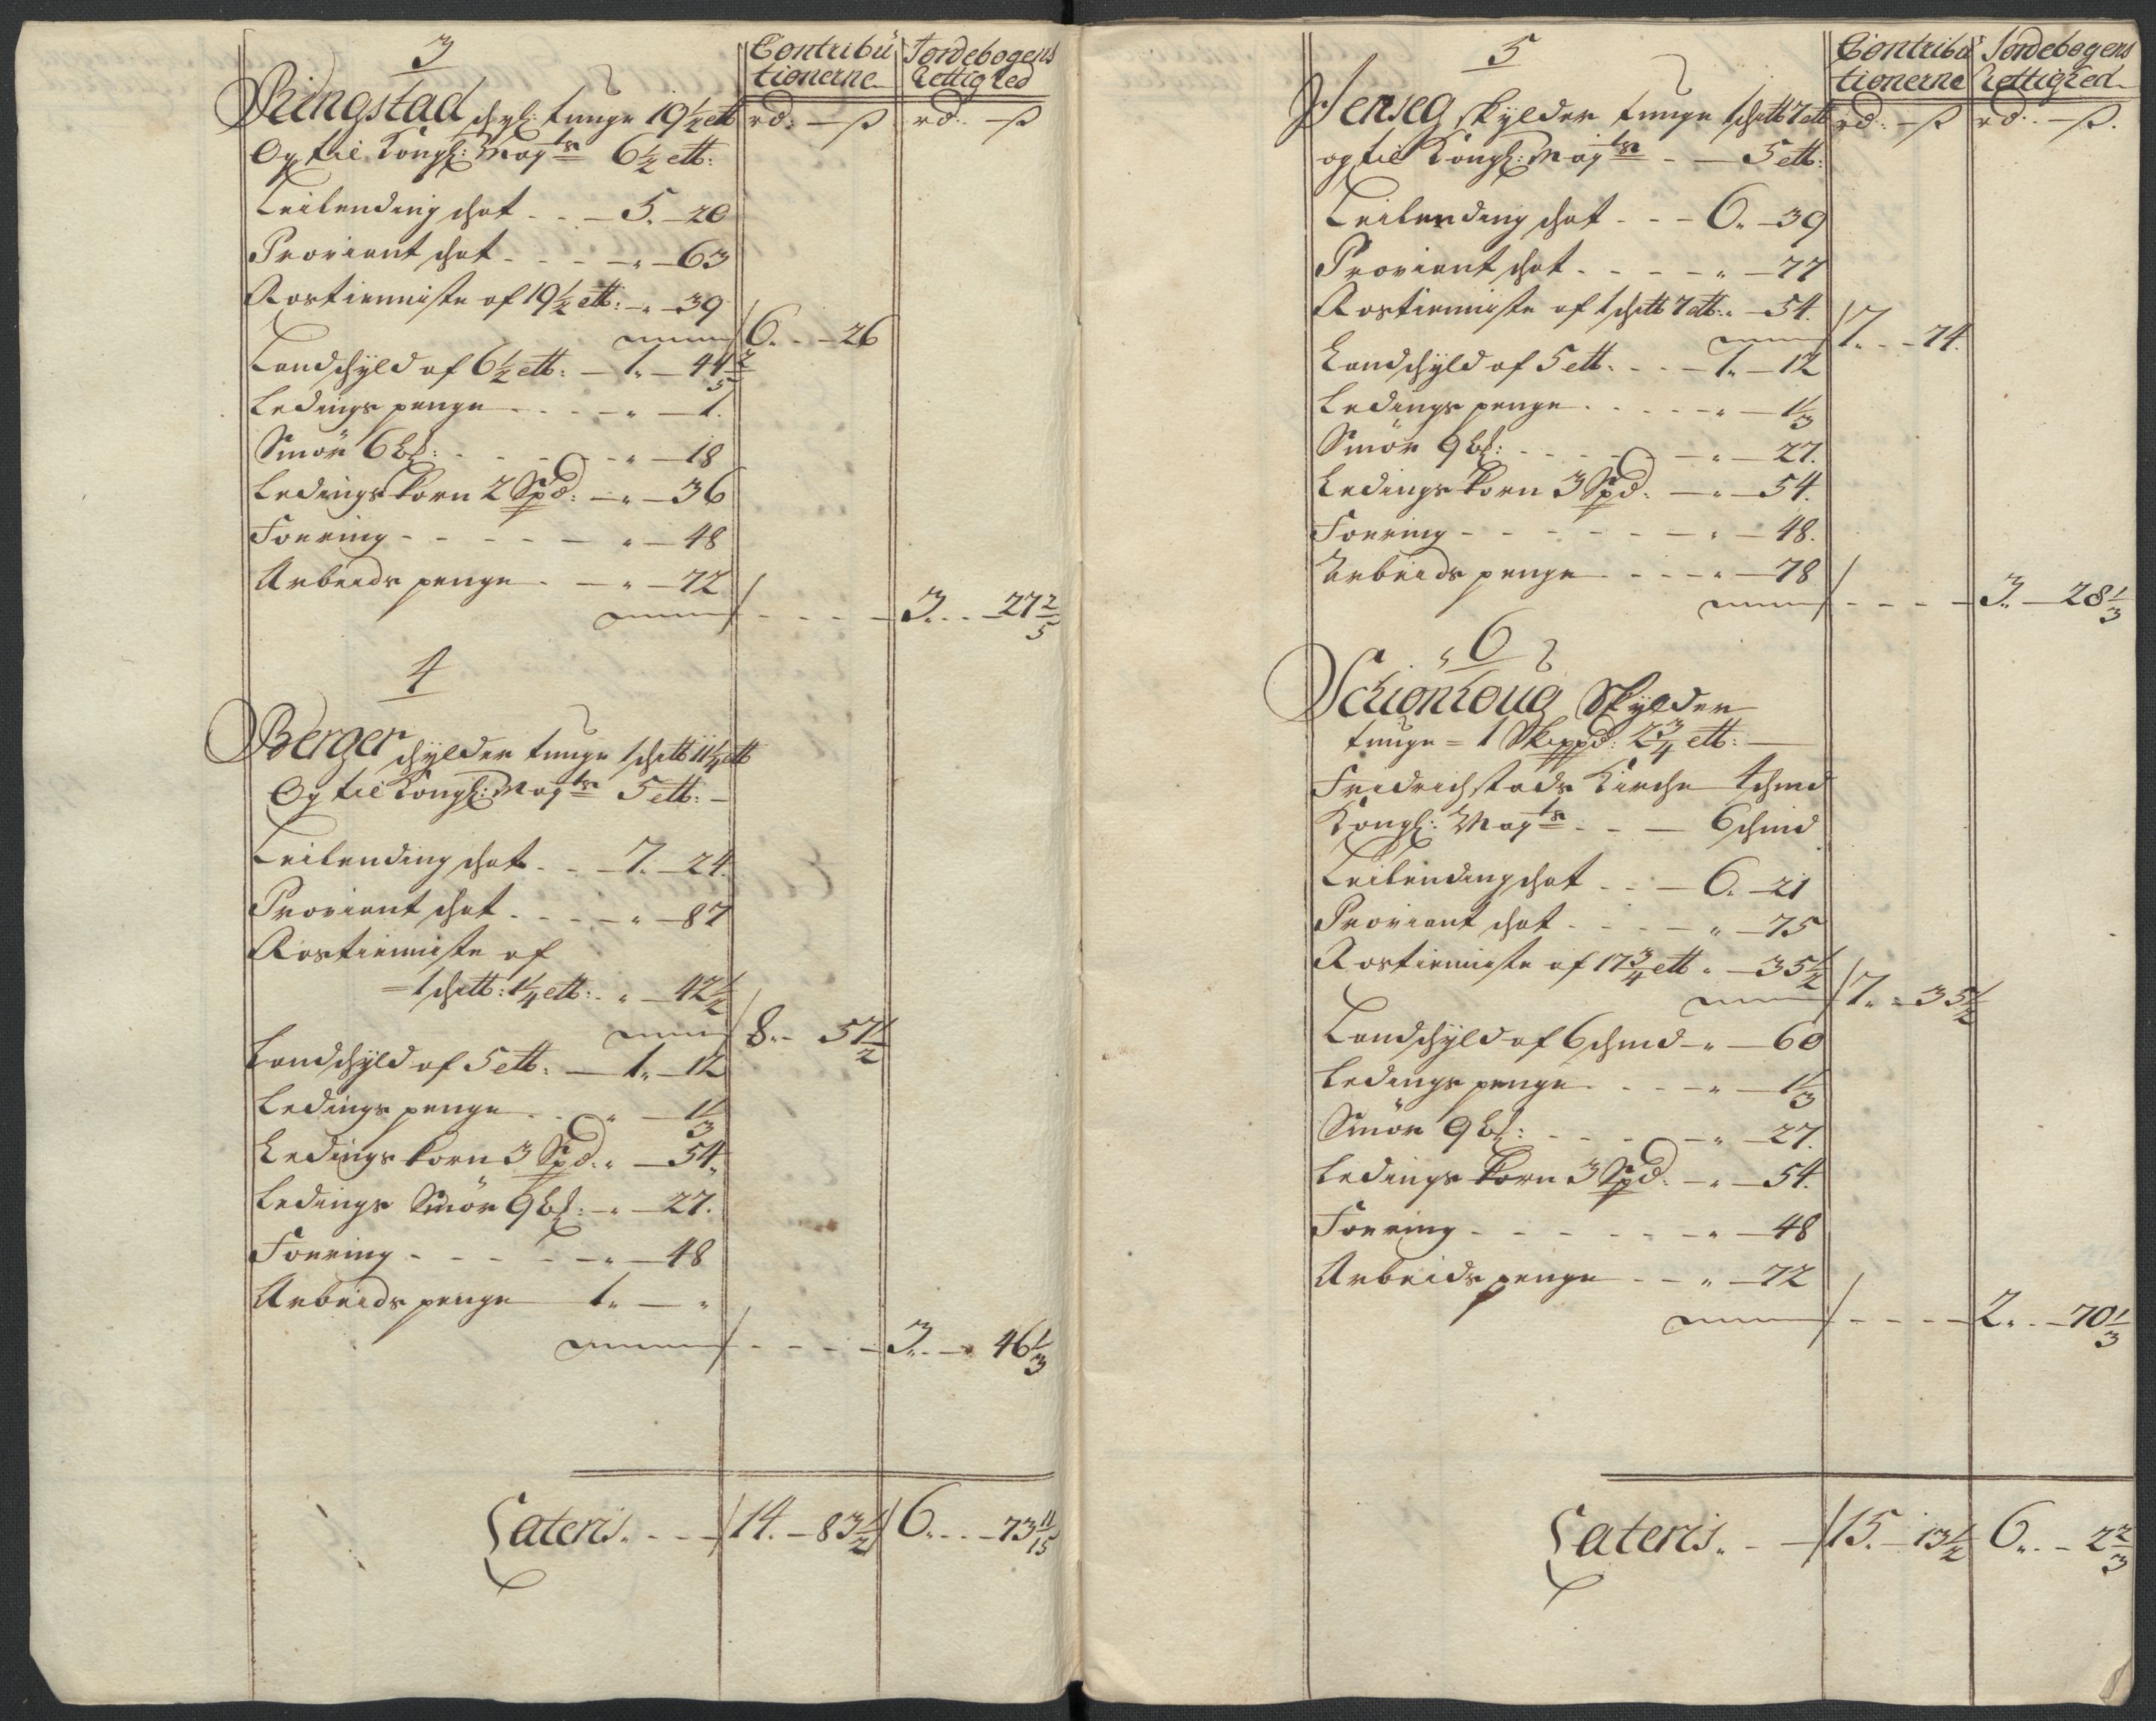 3
Contribu Jordebogens
tionerne Rettighed
Ringstad schyl: tunge 19½ ell rd: — ß rd: — ß
Og til Kongl: Mayts 6½ ell:
Leilending schat - - 5. 20
Proviant schat - - - „ 63
Rostieniste af 19½ ell: „ 39
6. - 26
Landschyld af 6½ ell: 1. 44 2/5
Ledings penge - - - „ 1.
Smör 6 bl: - - - „ 18
Ledings korn 2 Spd: „ 36
Foering - - - - „ 48
Arbeids penge - „ 72
3. - 27 2/5
4
Berger schylder tunge 1 schll 11¼ ell
Og til Kongl: Mayts 5 ell: —
Leilending schat - - 7. 24.
Proviant schat - - - „ 87
Rostieniste af
= 1 schll: 1¼ ell: - „ 42½
8. - 57½
Landschyld af 5 ell: 1. 12
Ledings penge - - „ 1⅓
Ledings korn 3 Spd: „ 54.
Ledings Smör 9 bl: „ 27.
Foering - - - - „ 48
Arbeids penge 1. — „
3. - 46⅓
Lateris. - - - 14. 83½ 6. - 73 11/15
5
Contribu Jordebogens
tionerne Rettighed
Jenseg skylder tunge 1 schll 7 ell rd: — ß rd: — ß.
og til Kongl: Mayts - 5 ell:
Leilending schat - - - 6. 39
Proviant schat - - - „ 77
Rostieniste af 1 schll 7 ell: „ 54.
7. - 74.
Landschyld af 5 ell. - - 1. 12
Ledings penge - - - „ 1⅓
Smör 9 bl: - - - „ 27.
Ledings korn 3 Spd: „ 54.
Foering - - - - „ 48.
Arbeids penge - - - „ 78
3. 28⅓
6
Schionhoug Skylder
tunge = 1 Skippd: 2¾ ell: —
Fridrichstads Kirche 4 schind
Kongl: Mayts - - 6 schind
Leilending schat - - 6. 21
Proviant schat - - - „ 75
Rostieniste af 17¾ ell „ 35½
7. - 35½
Landschyld af 6 schind „ 60
Ledings penge - - - „ 1⅓
Smör 9 bl: - - - „ 27.
Ledings korn 3 Spd: „ 54.
Foering - - - - „ 48
Arbeids penge - - „ 72
2. - 70⅓
Lateris. - - 15. 13½ 6. - 2⅔